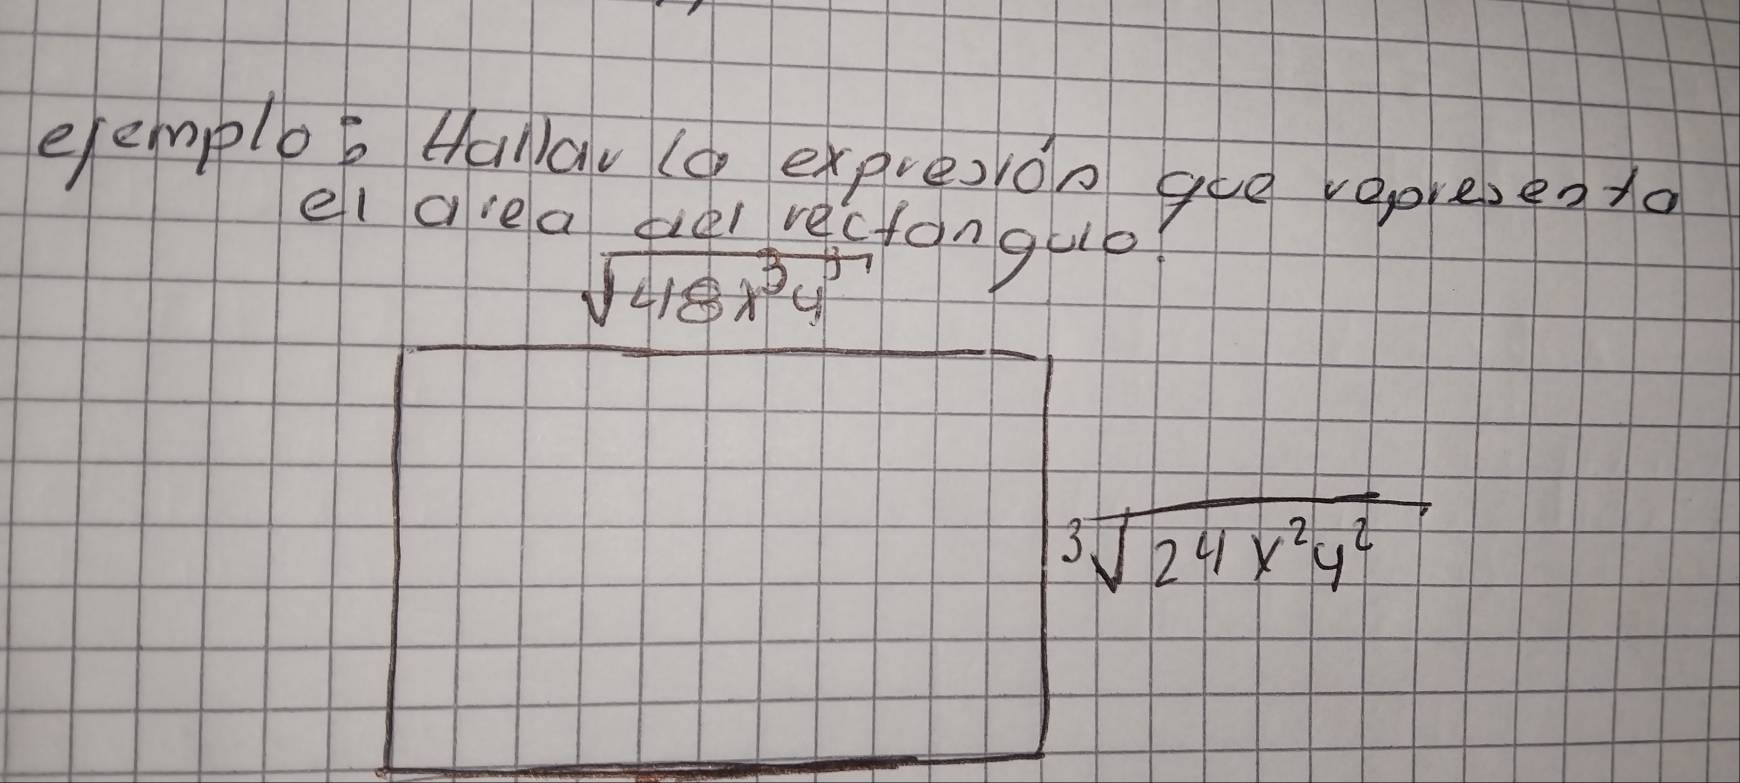 ejemplo: Hallar la expresión que representa
el area del rectangulo!
√48x³y³
³√24x²y²